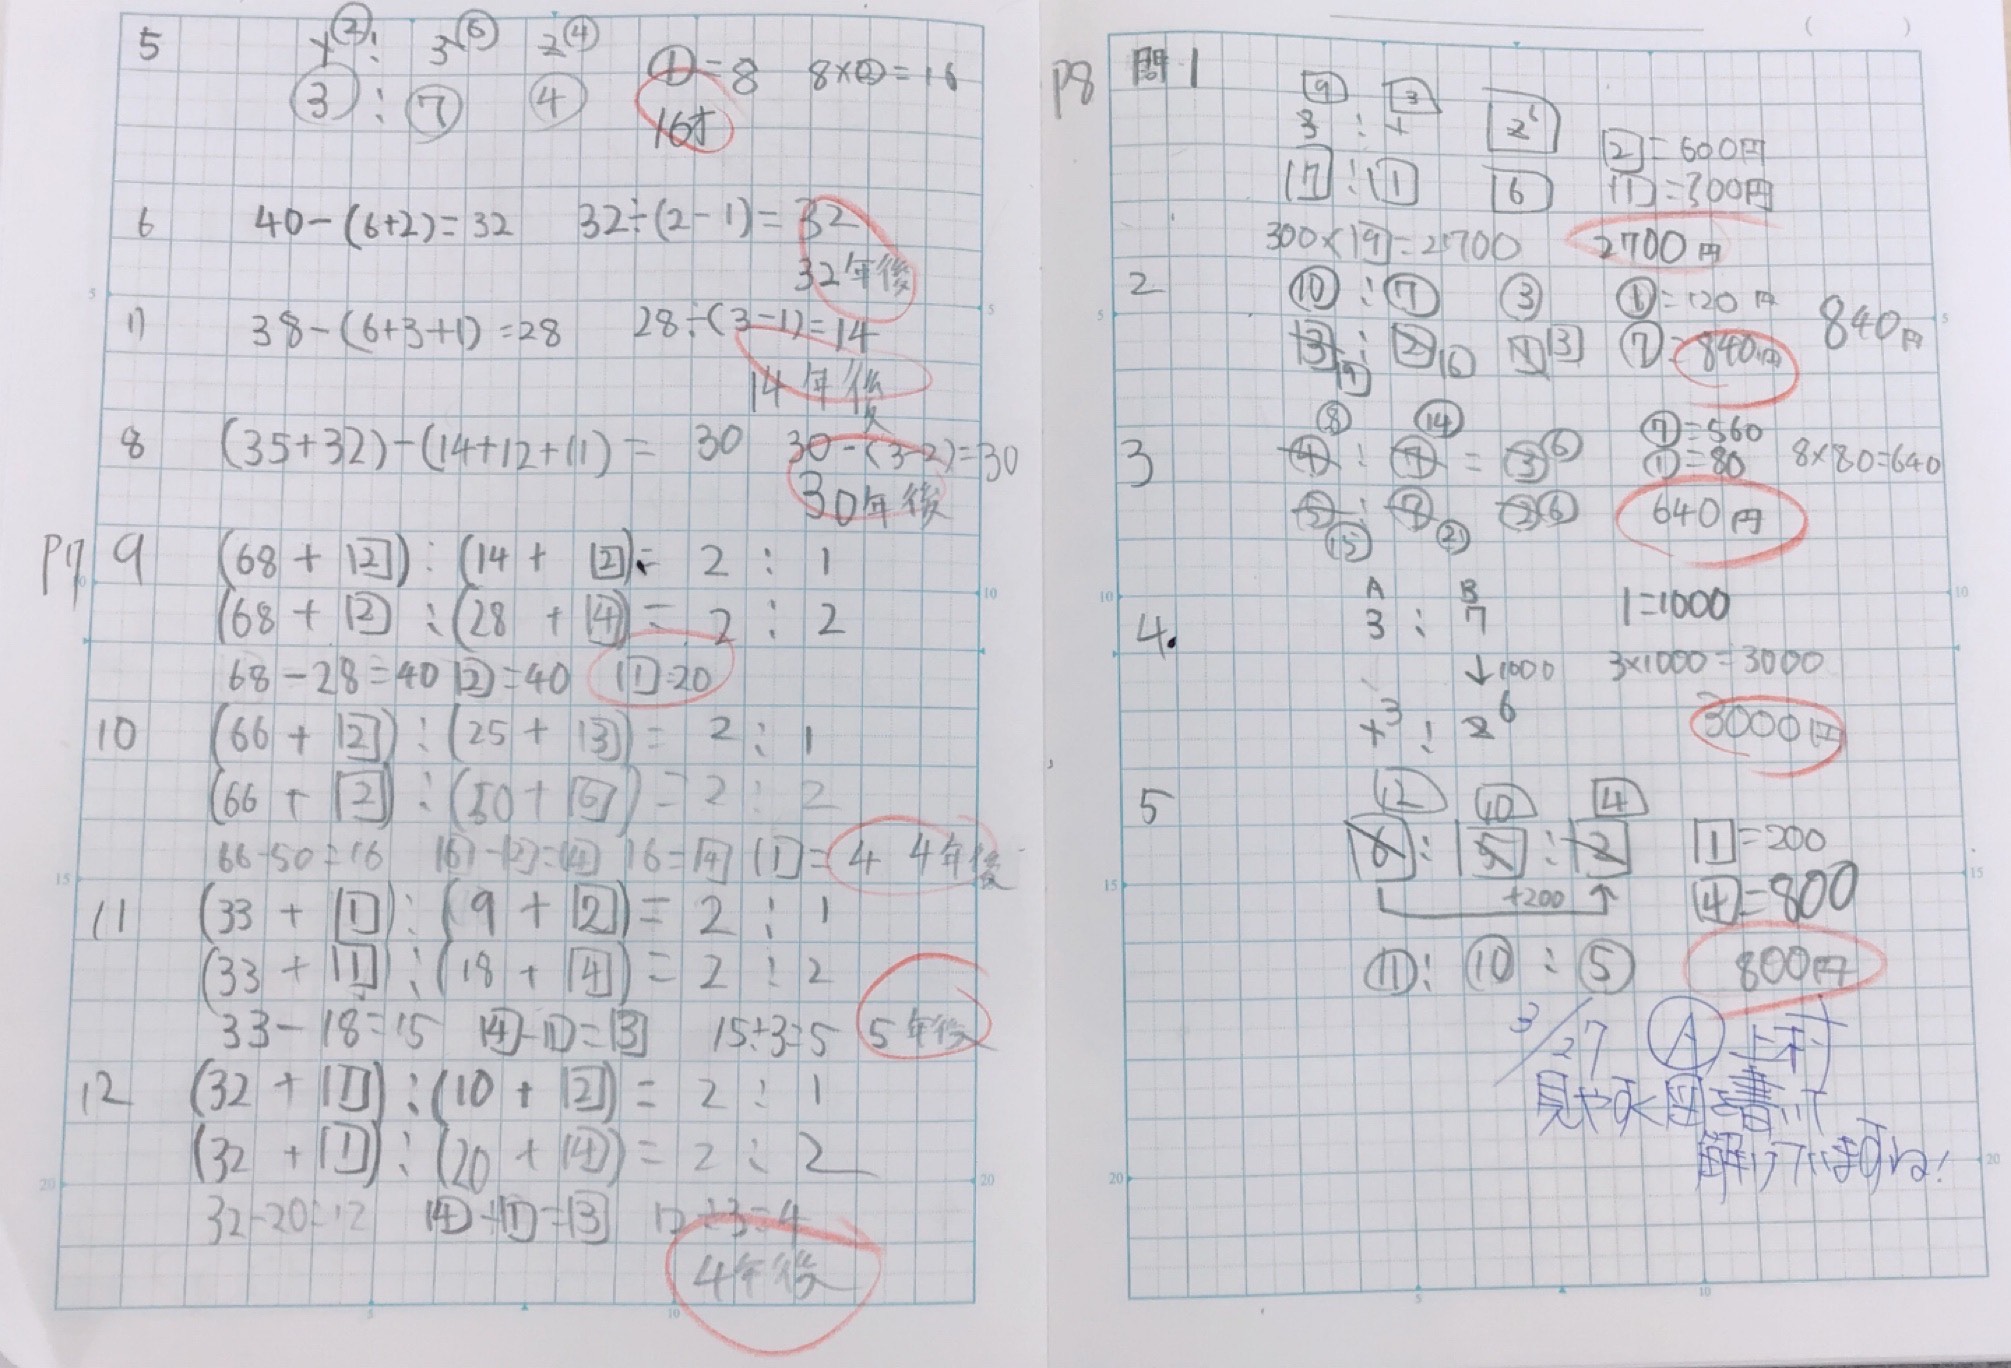 5
1② : 3⑥ 2④
③ : ⑦ ④
①=8 8×②=16
16才
6 40-(6+2)=32 32÷(2-1)=32
32年後
7 38-(6+3+1)=28 28÷(3-1)=14
14年後
8 (35+32)-(14+12+11)= 30 30-(3-2)=30
30年後
P7 9 (68+2):(14+2)= 2 : 1
(68+2):(28+4)= 2 : 2
68-28=40 2=40 1=20
10 (66+2):(25+3)= 2 : 1
(66+2):(50+6)= 2 : 2
66-50=16 6-2=4 16=4 1=4 4年後
11 (33+1):(9+2)= 2 : 1
(33+1):(18+4)= 2 : 2
33-18=15 4-1=3 15÷3=5 5年後
12 (32+1):(10+2)= 2 : 1
(32+1):(20+4)= 2 : 2
32-20=12 4-1=3 12÷3=4
4年後
P8 問1
9 3
3 : 1 2⁶
7 : 1 6
2=600円
1=300円
300×9=2700 2700円
2 ⑩ : ⑦ ③ ①=120円
3 : 2 1 3 ⑦=840円 840円
9 6
⑧ ⑭
3 ④ : ⑦ = ③⑥
⑤ : ⑦ ②⑥
⑮ ㉑
⑦=560
①=80 8×80=640
640円
A B
4. 3 : 7 1=1000
↓1000 3×1000=3000
1³ : 2⁶ 3000円
5 12 10 4
6 : 5 : 2 1=200
+200 4=800
⑪ : ⑩ : ⑤ 800円
3/27 Ⓐ 上手に
見やすく図を書いて
解けていますね!